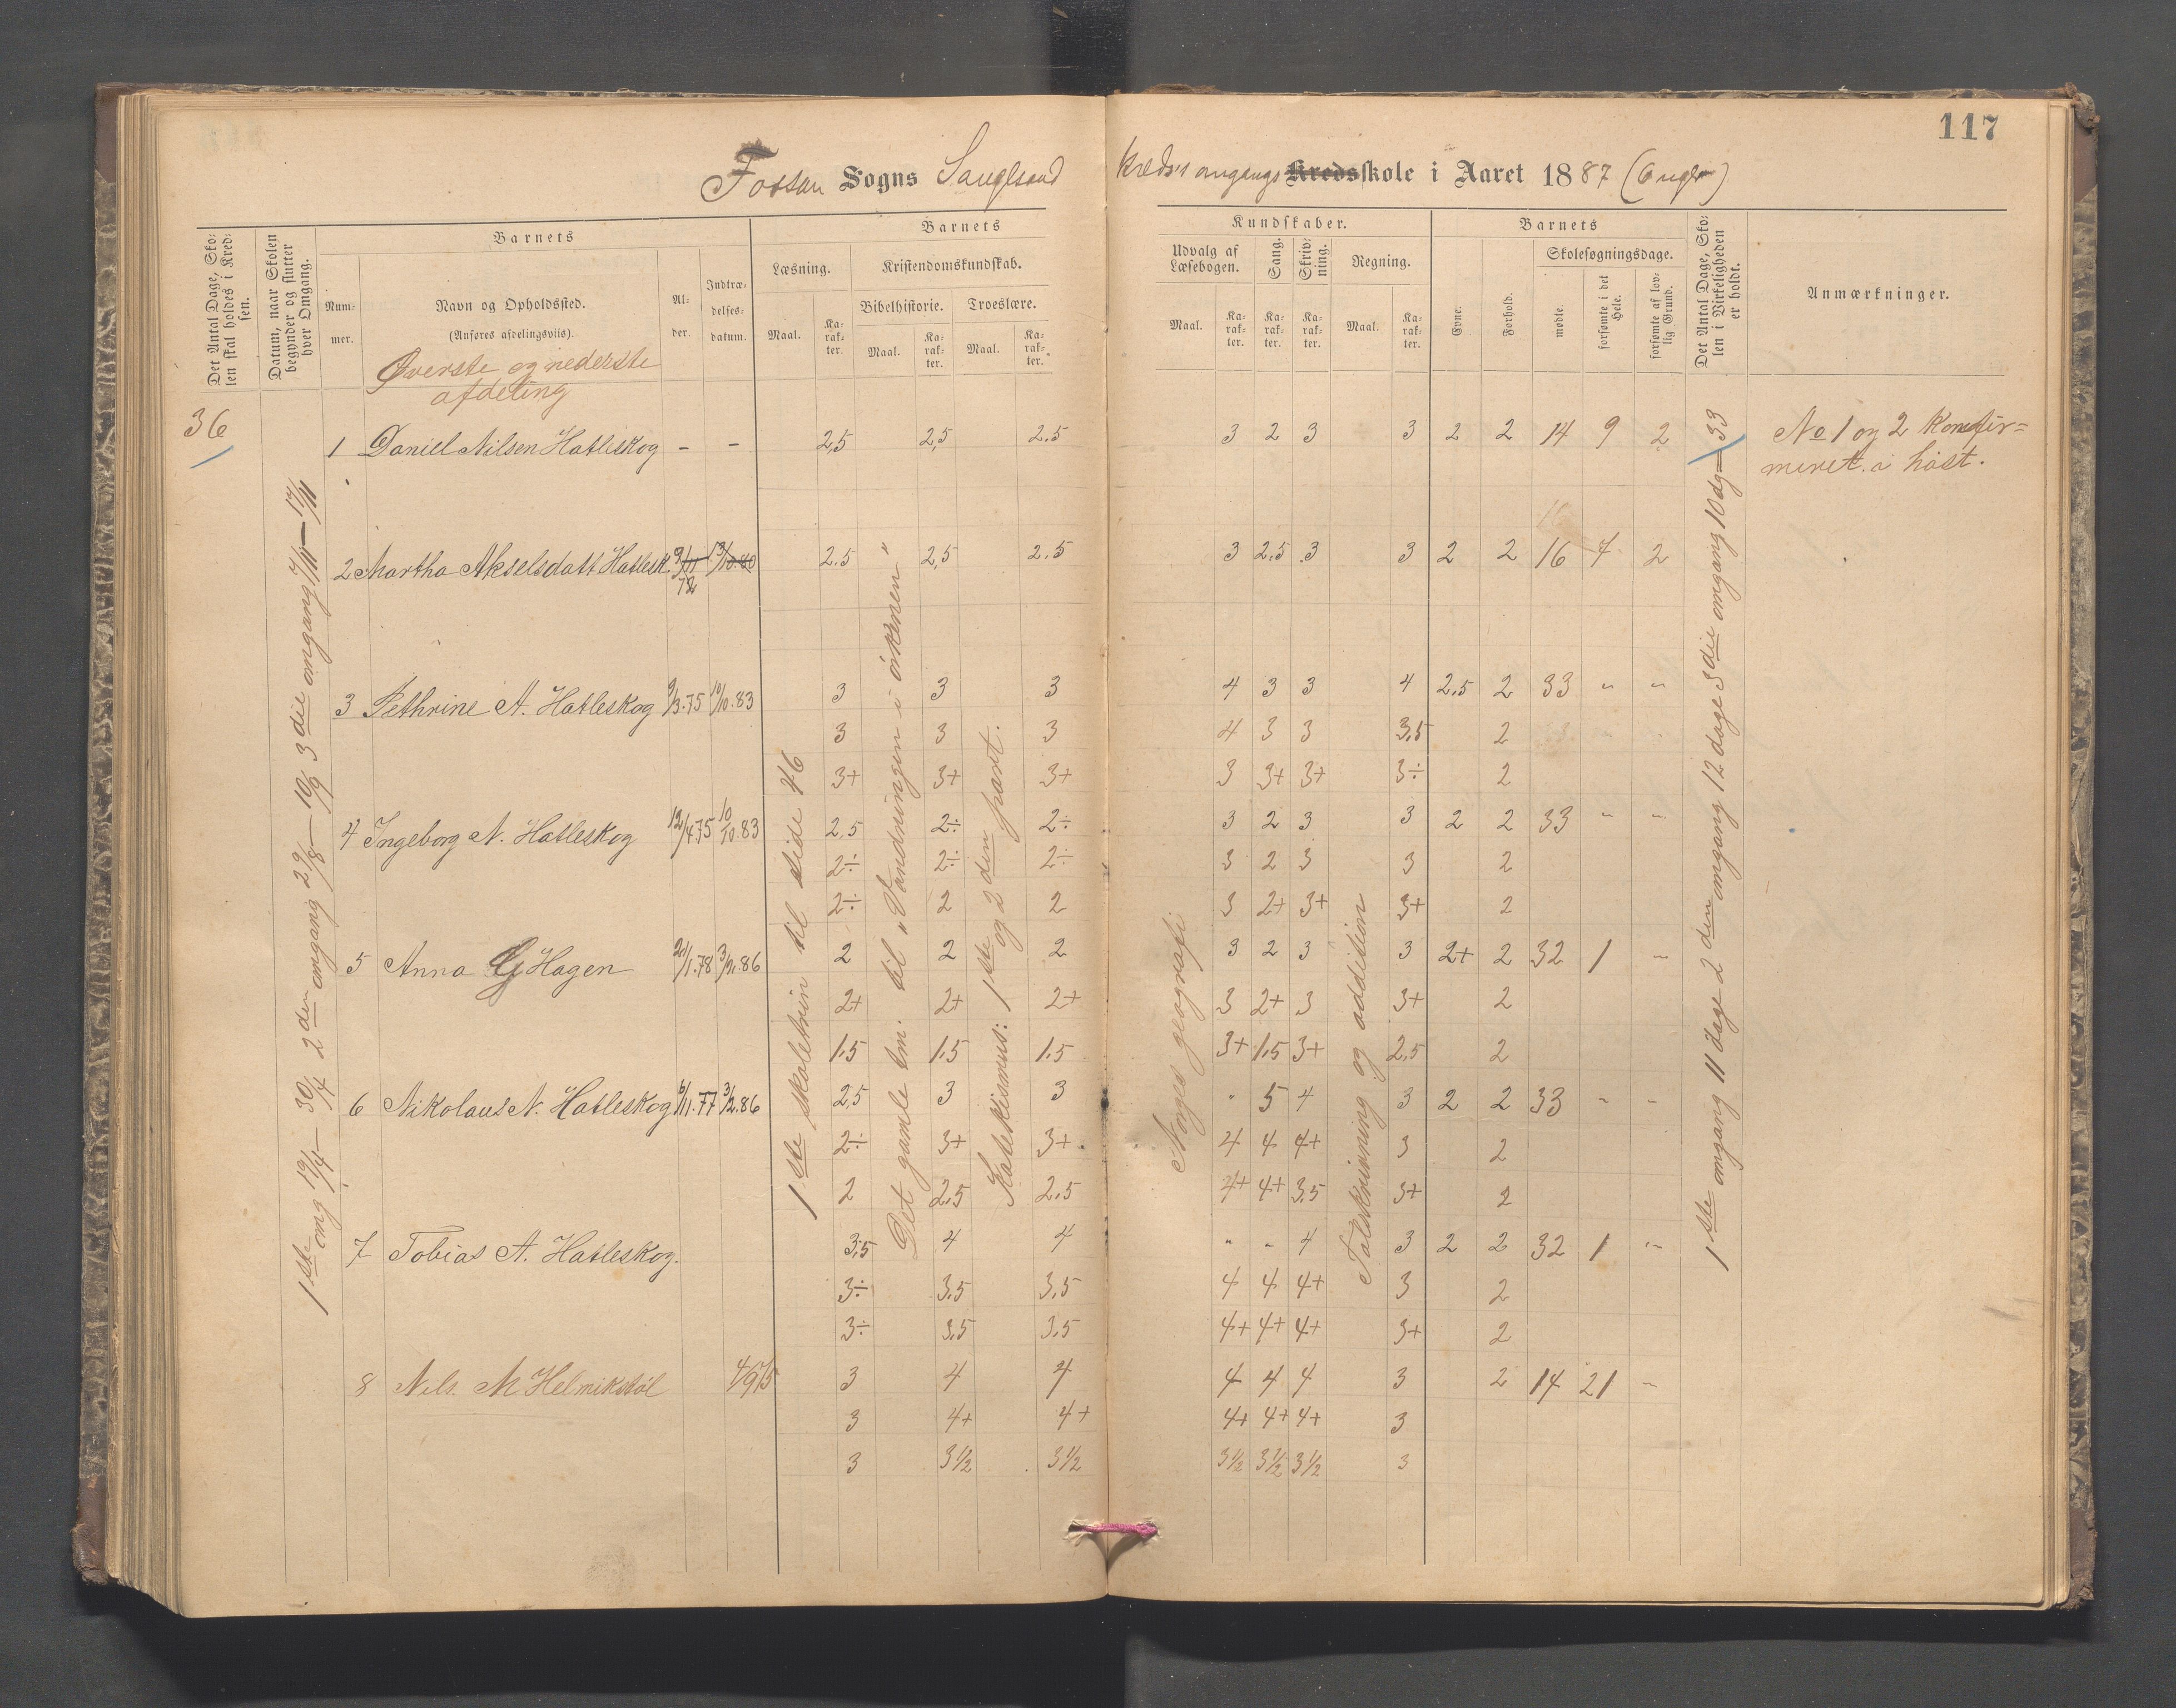 117
Fossan Sogns Sauglsand Kreds's omgangs Kredsskole i Aaret 1887
Det Antal Dage, Skolen skal holdes i Kredsen.
Datum, naar Skolen begynder og slutter hver Omgang.
Barnets
Nummer.
Navn og Opholdssted.
(Anføres afdelingsviis).
Alder.
Indtrædelsesdatum.
Barnets
Læsning.
Maal.
Karakter.
Kristendomskundskab.
Bibelhistorie.
Maal.
Karakter.
Troeslære.
Maal.
Karakter.
Kundskaber.
Udvalg af Læsebogen.
Maal.
Karakter.
Sang.
Karakter.
Skrivning.
Karakter.
Regning.
Maal.
Karakter.
Barnets
Evne.
Forhold.
Skolesøgningsdage.
mødte.
forsømte i det Hele.
forsømte af lovlig Grund.
Det Antal Dage, Skolen i Virkeligheden er holdt.
Anmærkninger.
Øverste og nederste
afdeling
36
1 Daniel Nilsen Hatleskog - - 2,5 2,5 2.5 3 2 3 3 2 2 14 9 2
No 1 og 2 Konfir=
meret i høst.
2 Martha Akselsdatt Hatlesk. 2.5 2,5 2.5 3 2.5 3 3 2 2 16 7 2
3 Pethrine A. Hatleskog 9/3.75 10/10.83 3 3 3 4 3 3 4 2,5 2 33 " "
3 3 3 4 3 3 3,5 2
3+ 3+ 3+ 3 3+ 3+ 3÷ 2
4 Ingeborg N. Hatleskog 12/4.75 10/10.83 2,5 2÷ 2÷ 3 2 3 3 2 2 33 " "
2÷ 2÷ 2÷ 3 2 3 3 2
2÷ 2 2 3 2+ 3+ 3+ 2
5 Anna G Hagen 2 2 2 3 2 3 3 2+ 2 32 1 "
2+ 2+ 2+ 3 2+ 3 3+ 2
1,5 1,5 1,5 3+ 1,5 3+ 2,5 2
6 Nikolaus N. Hatleskog 6/11.77 3/2.86 2,5 3 3 " 5 4 3 2 2 33 " "
2÷ 3+ 3+ 4 4 4+ 3 2
2 2,5 2,5 4+ 4+ 3,5 3+ 2
7 Tobias A. Hatleskog. 3,5 4 4 " " 4 3 2 2 32 1 "
3÷ 3,5 3,5 4 4 4+ 3 2
3÷ 3,5 3,5 4+ 4+ 4+ 3+ 2
8 Nils. M Helmikstøl 3 4 4 4 4 4 3 2 14 21 "
3 4+ 4+ 4+ 4+ 4+ 3
3 3½ 3½ 3½ 3½ 3½ 3
1ste omg 19/4 — 30/4 2den omgang 29/8 — 10/9 3die omgang 7/11 — 17/11
1ste skoletrin til side 46
Det gamle tm. til "Vandringen i ørkenen"
Katekismus: 1ste og 2den part.
Norges geografi
Talskrivning og addition
1ste omgang 11 dage 2den omgang 12 dage 3die omgang 10 dg — 33